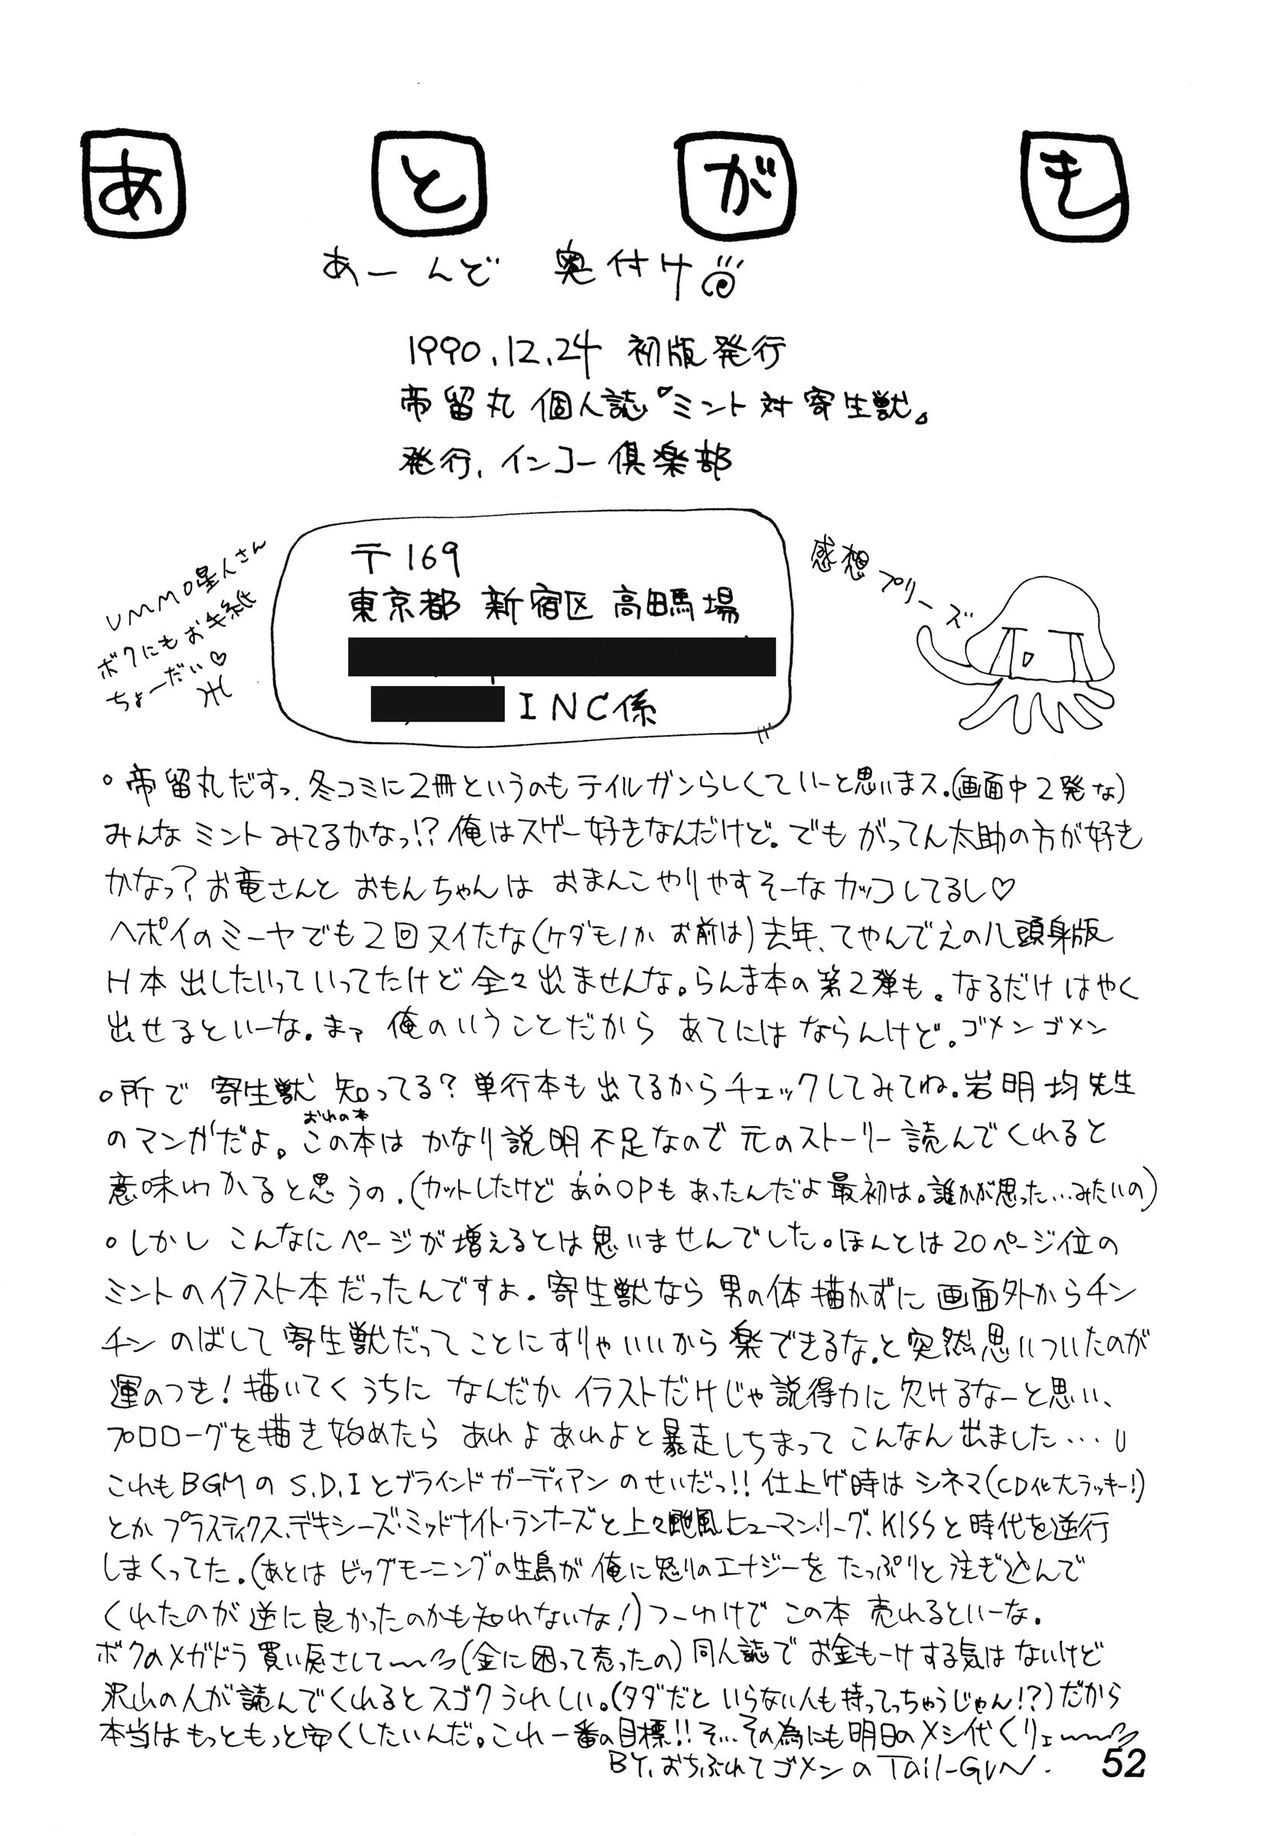 あとがき
あーんど 奥付け
1990.12.24 初版発行
帝留丸 個人誌『ミント対寄生獣』
発行、インコー倶楽部
〒169
東京都 新宿区 高田馬場
INC係
UMMO星人さん
ボクにもお手紙
ちょーだい♡
感想プリーズ
○帝留丸だすっ、冬コミに2冊というのもテイルガンらしくていーと思いまス。(画面中2発な)
みんなミントみてるかなっ!?俺はスゲー好きなんだけど。でもがってん太助の方が好き
かなっ?お竜さんとおもんちゃんはおまんこやりやすそーなカッコしてるし♡
ヘポイのミーヤでも2回ヌイたな(ケダモノか お前は)去年、てやんでえの八頭身版
H本出したいっていってたけど全々出ませんな。らんま本の第2弾も。なるだけはやく
出せるといーな。まァ 俺のいうことだから あてにはならんけど。ゴメンゴメン
○所で 寄生獣 知ってる?単行本も出てるからチェックしてみてね。岩明均先生
のマンガだよ。この本(おれの本)はかなり説明不足なので元のストーリー読んでくれると
意味わかると思うの。(カットしたけどあのOPもあったんだよ最初は。誰かが思った…みたいの)
○しかし こんなにページが増えるとは思いませんでした。ほんとは20ページ位の
ミントのイラスト本だったんですよ。寄生獣なら 男の体描かずに 画面外からチン
チンのばして寄生獣だってことにすりゃいいから楽できるな。と突然思いついたのが
運のつき!描いてくうちに なんだか イラストだけじゃ説得力に欠けるなーと思い、
プロローグを描き始めたら あれよあれよと暴走しちまって こんなん出ました…
これもBGMのS.D.Iとブラインドガーディアンのせいだっ!!仕上げ時はシネマ(CD化大ラッキー!)
とか プラスティクス、デキシーズ・ミッドナイト・ランナーズと上々颱風、ヒューマン・リーグ、KISSと時代を逆行
しまくってた。(あとは ビッグモーニングの生島が 俺に怒りのエナジーを たっぷりと注ぎ込んで
くれたのが逆に良かったのかも知れないな!)つーわけで この本 売れるといーな。
ボクのメガドラ買い戻さして〜〜(金に困って売ったの)同人誌でお金もーけする気はないけど
沢山の人が読んでくれるとスゴクうれしい。(タダだといらない人も持ってっちゃうじゃん!?)だから
本当はもっともっと安くしたいんだ。これ一番の目標!!そ…その為にも明日のメシ代くりェ〜〜
BY.おちぶれてゴメンのTail-GuN.
52